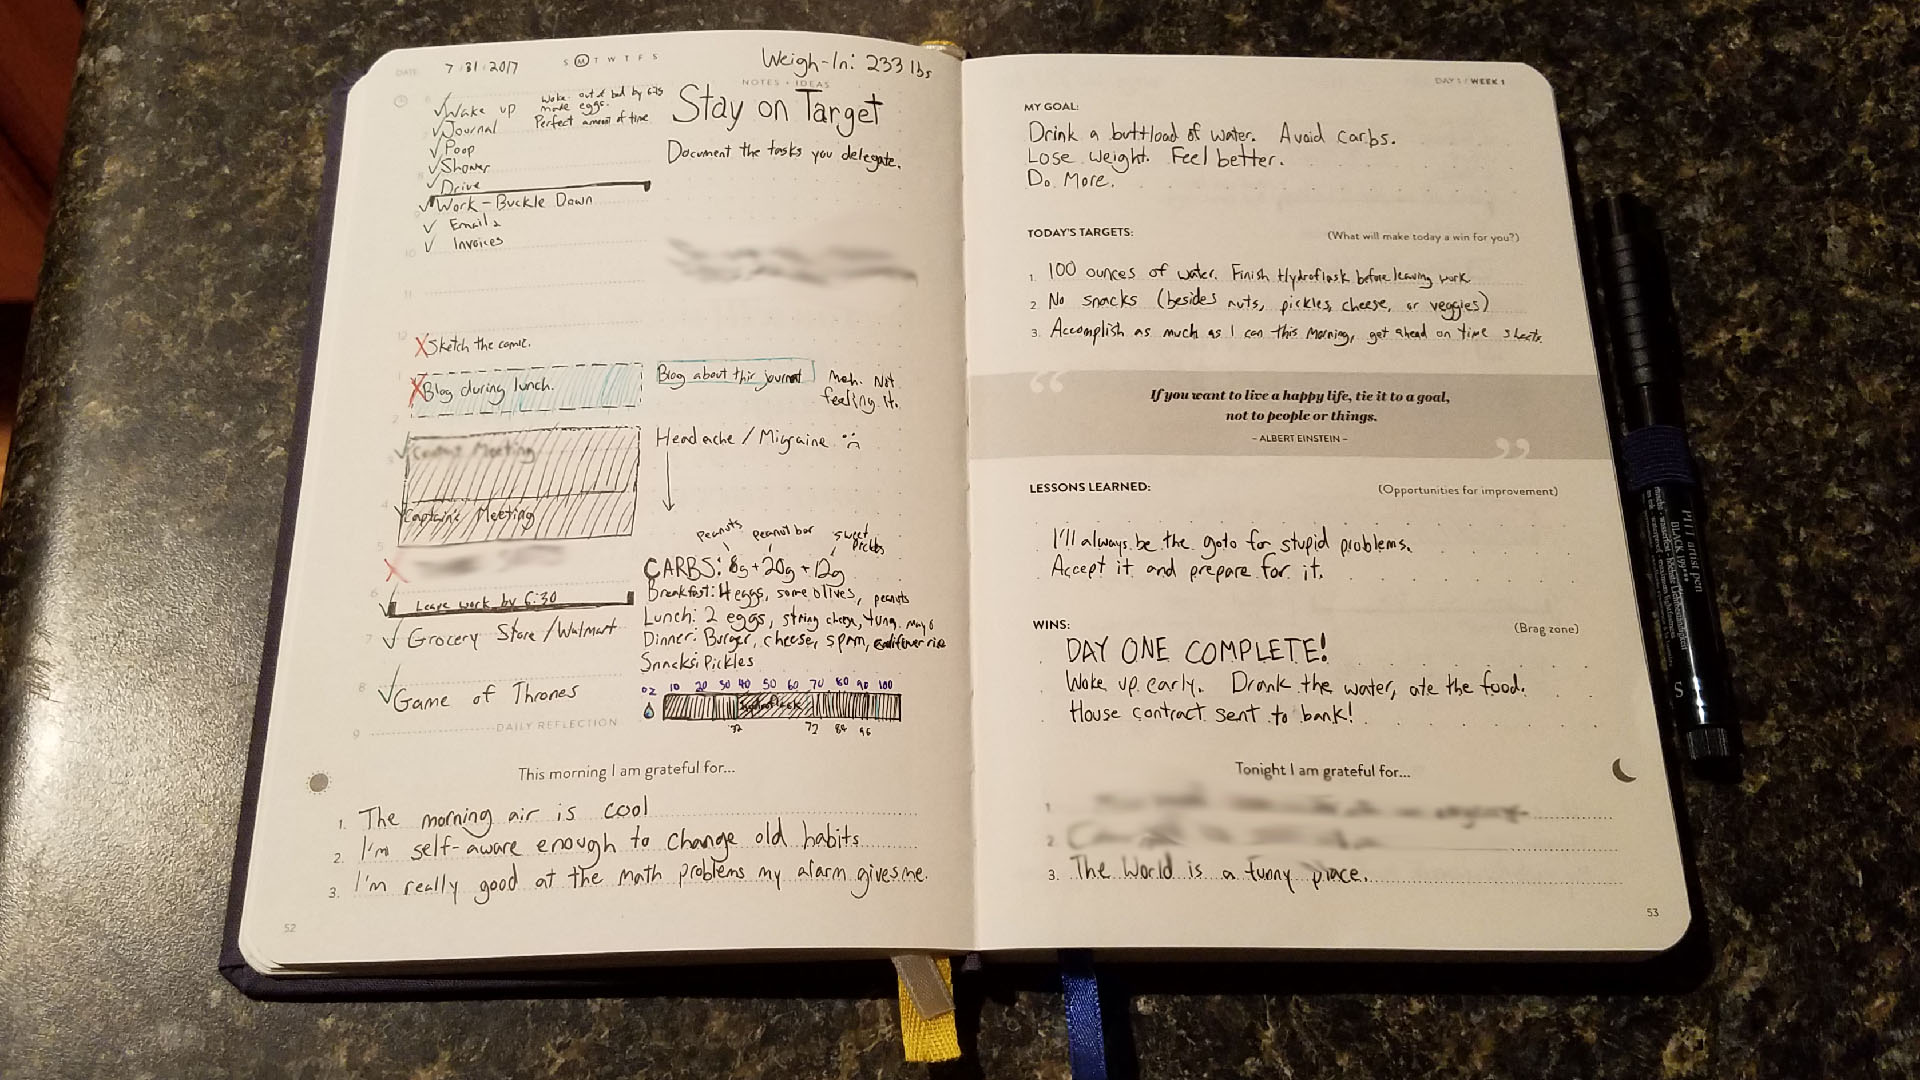 DATE: 7 31 2017 S M T W T F S Weigh-In: 233 lbs
NOTES + IDEAS
Wake up
Woke: out of bed by 6:25
made eggs.
Perfect amount of time
Journal
Poop
Shower
Drive
Work - Buckle Down
Emails
Invoices
10
11
12
Sketch the comic.
Blog during lunch.
2
Meeting
4
Captain's Meeting
5
6
Leave work by 6:30
7 Grocery Store / Walmart
8 Game of Thrones
9
Stay on Target
Document the tasks you delegate.
Blog about this journal
Meh. Not
feeling it.
Headache / Migraine
peanuts peanut bar sweet
pickles
CARBS: 8g + 20g + 12g
Breakfast: 4 eggs, some olives, peanuts
Lunch: 2 eggs, string cheese, tuna, mayo
Dinner: Burger, cheese, spam, cauliflower rice
Snacks: Pickles
oz 10 20 30 40 50 60 70 80 90 100
Hydroflask
32 72 84 96
DAILY REFLECTION
This morning I am grateful for...
1. The morning air is cool
2. I'm self-aware enough to change old habits
3. I'm really good at the math problems my alarm gives me.
52
DAY 1 / WEEK 1
MY GOAL:
Drink a buttload of water. Avoid carbs.
Lose weight. Feel better.
Do More.
TODAY'S TARGETS: (What will make today a win for you?)
1. 100 ounces of water. Finish Hydroflask before leaving work
2. No snacks (besides nuts, pickles, cheese, or veggies)
3. Accomplish as much as I can this morning, get ahead on time sheets.
“
If you want to live a happy life, tie it to a goal,
not to people or things.
– ALBERT EINSTEIN –
”
LESSONS LEARNED: (Opportunities for improvement)
I'll always be the goto for stupid problems.
Accept it and prepare for it.
WINS: (Brag zone)
DAY ONE COMPLETE!
Woke up early. Drank the water, ate the food.
House contract sent to bank!
Tonight I am grateful for...
1.
2.
3. The World is a funny place.
53
PITT artist pen
BLACK 199
S